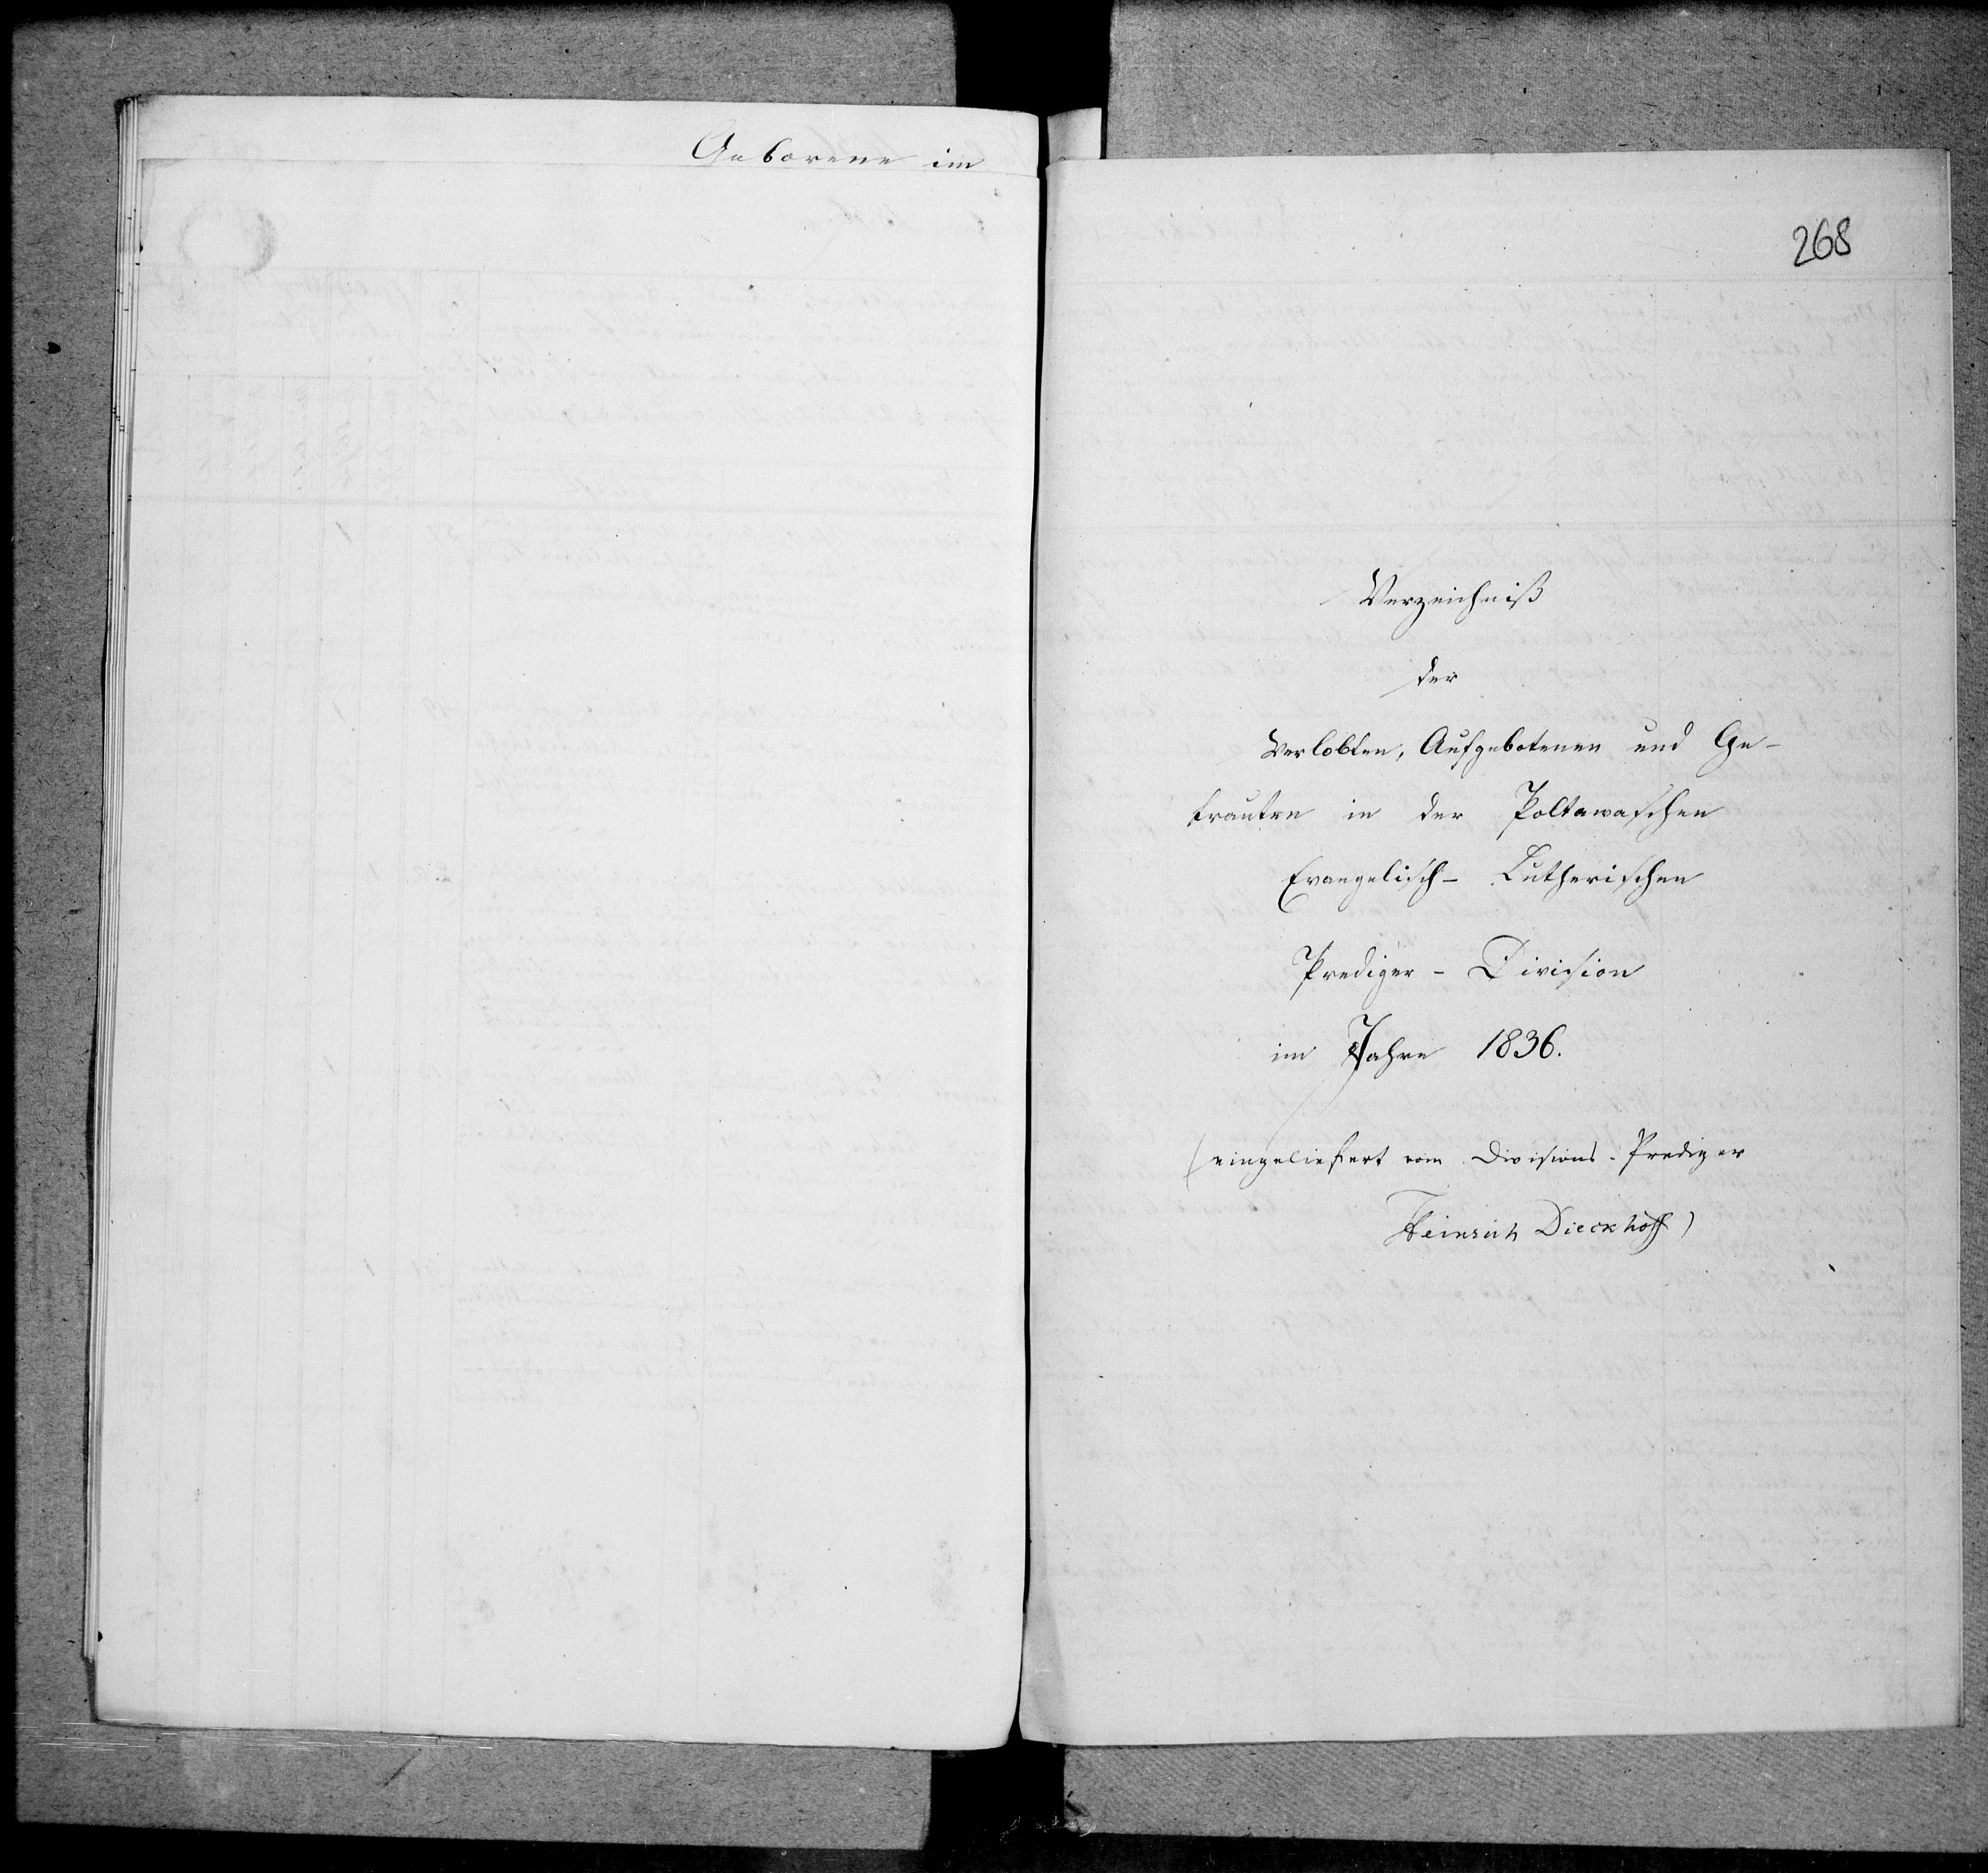 Geborene im
268
Verzeichniß
der
Verlobten, Aufgebotenen und Ge-
trauten in der Poltawaschen
Evangelisch- Lutherischen
Prediger- Division
im Jahre 1836.
(eingeliefert vom Divisions-Prediger
Heinrich Dieckhoff)